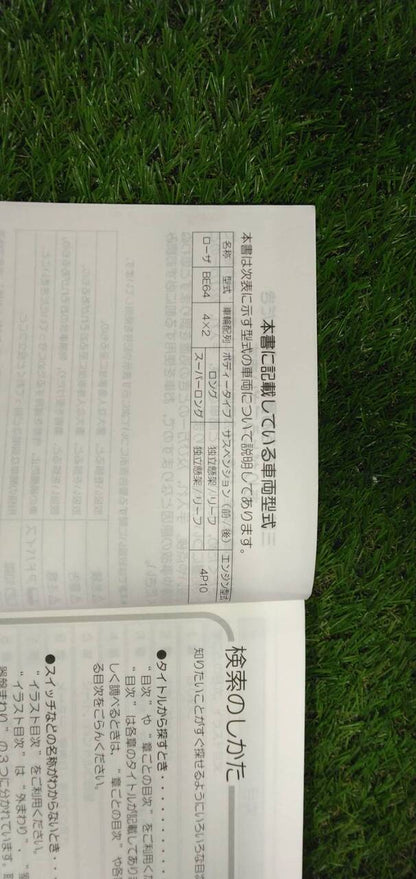 本書に記載している車両型式
本書は次表に示す型式の車両について説明してあります。
名称 型式 車輪配列 ボディータイプ サスペンション（前/後） エンジン型式
ローザ BE64 4×2 ロング 独立懸架/リーフ 4P10
スーパーロング 独立懸架/リーフ
検索のしかた
知りたいことがすぐ探せるようにいろいろな目
●タイトルから探すとき・・・・・・・・・
“目次”や“章ごとの目次”をご利用くだ
“目次”は各章のタイトルが記載してあり
しく調べるときは、“章ごとの目次”や各
る目次をごらんください。
●スイッチなどの名称がわからないとき・・
“イラスト目次”をご利用ください。
“イラスト目次”は“外まわり”、
器盤まわり”の3つに分かれています。